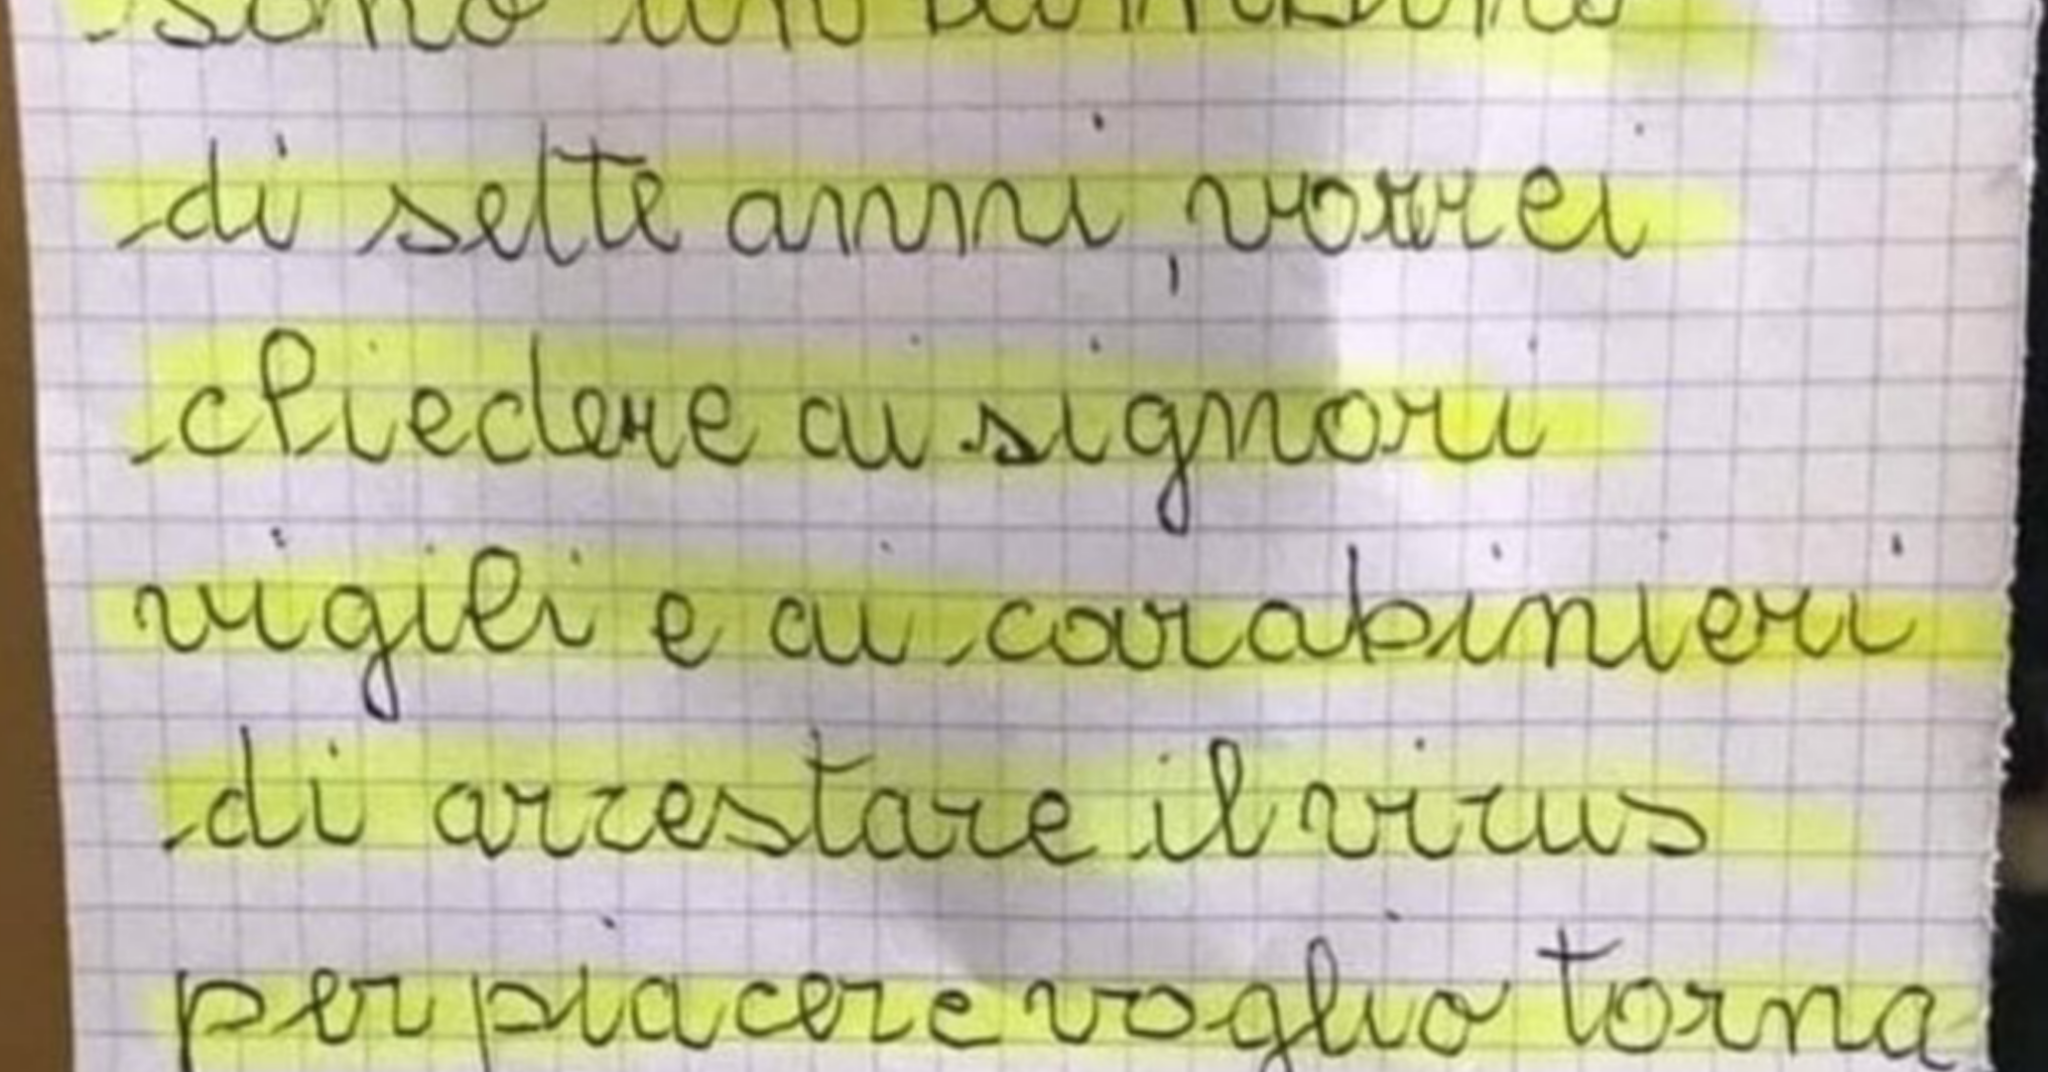 sono un bambino
di sette anni, vorrei
chiedere ai signori
vigili e ai carabinieri
di arrestare il virus
per piacere voglio torna